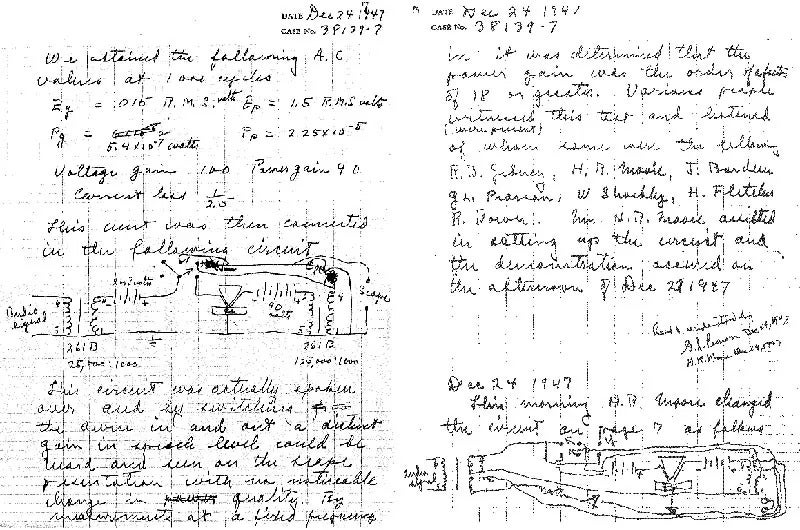 DATE Dec 24 1947
CASE No. 38139-7
We attained the following A.C.
values at 1000 cycles
Eg = .015 R.M.S. volts Ep = 1.5 R.M.S volts
Pg = 5.4 x 10-7 watts Pp = 2.25 x 10-5
Voltage gain 100 Power gain 40
Current loss 1/2.5
This unit was then connected
in the following circuit
Audio signal
261B
261B
25,000:1000
125,000:1000
This circuit was actually spoken
over and by switching
the device in and out a distinct
gain in speech level could be
heard and seen on the scope
presentation with no noticeable
change in quality. By
measurements at a fixed frequency
DATE Dec 24 1947
CASE No. 38139-7
in it was determined that the
power gain was the order of
of 18 or greater. Various people
witnessed this test and listened
(were present)
of whom some were the following
R.B. Gibney, H.R. Moore, J. Bardeen
G.L. Pearson, W. Shockley, H. Fletcher
R. Bown. Mr. H.R. Moore assisted
in setting up the circuit and
the demonstration occurred on
the afternoon of Dec 23 1947
Read & understood by
G.L. Pearson Dec 24, 1947
H.R. Moore Dec 24, 1947
Dec 24 1947
This morning H.R. Moore changed
the circuit on page 7 as follows
Audio signal